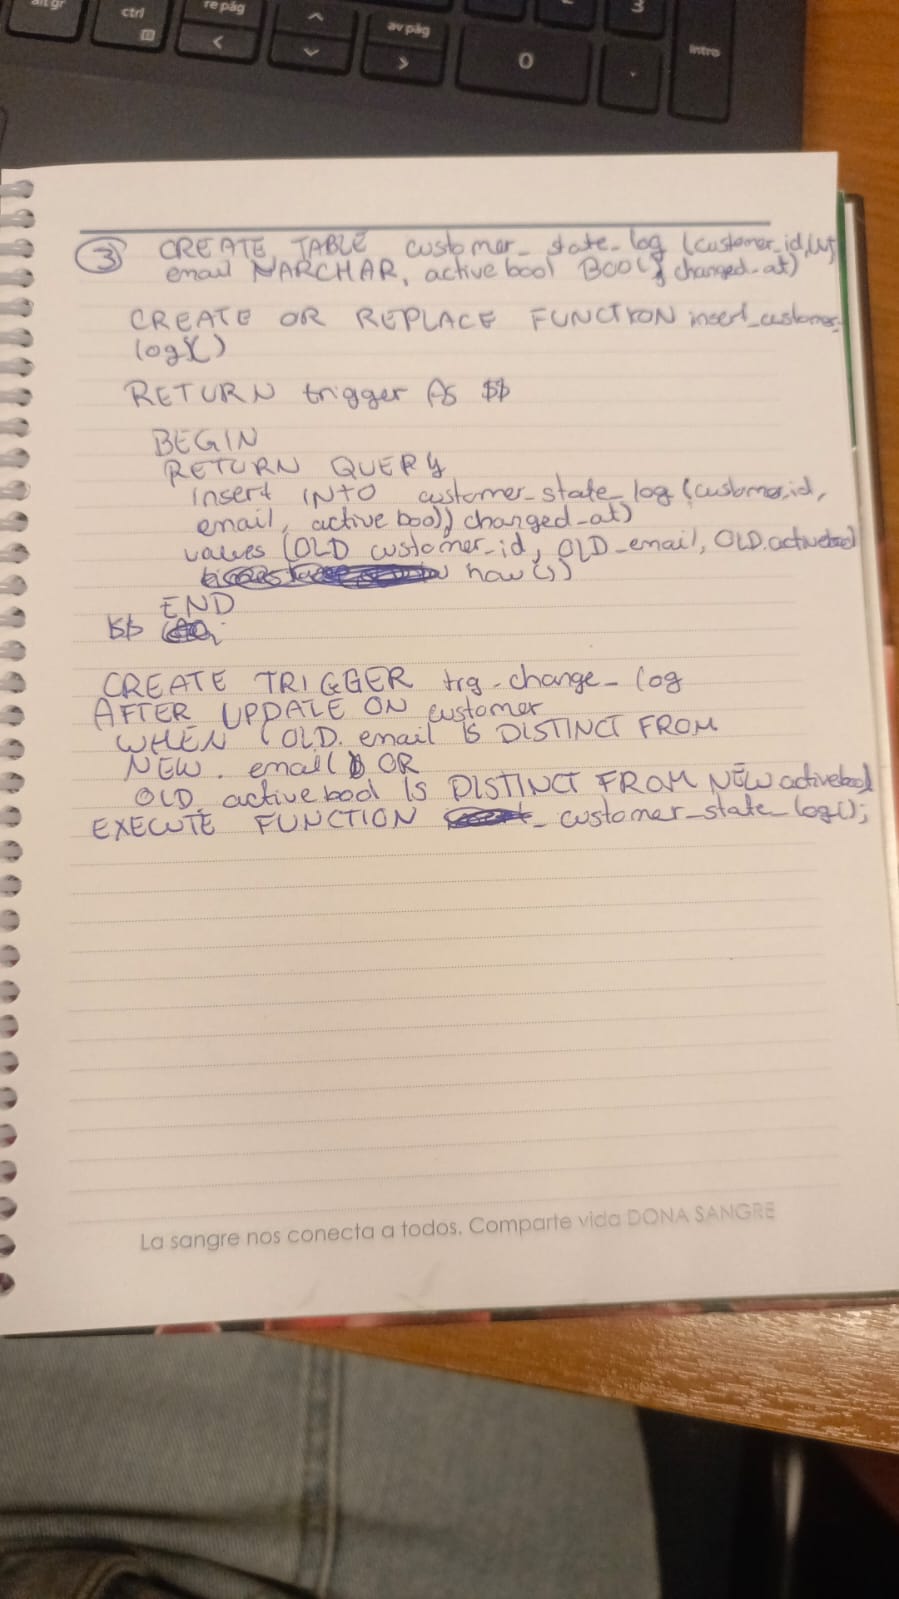 alt gr
ctrl
re pág
av pág
0
.
3
intro
3 CREATE TABLE customer_state_log (customer_id int
email VARCHAR, activebool BOOL, changed_at)
CREATE OR REPLACE FUNCTION insert_customer_
log()
RETURN trigger AS $$
BEGIN
RETURN QUERY
insert INTO customer_state_log (customer_id,
email, activebool, changed_at)
values (OLD customer_id, OLD_email, OLD.activebool
now())
END
$$ ;
CREATE TRIGGER trg_change_log
AFTER UPDATE ON customer
WHEN (OLD. email IS DISTINCT FROM
NEW. email OR
OLD. activebool IS DISTINCT FROM NEW activebool)
EXECUTE FUNCTION _customer_state_log();
La sangre nos conecta a todos. Comparte vida DONA SANGRE